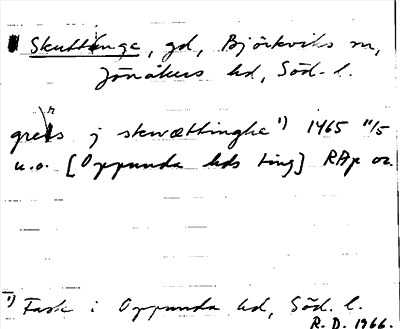 Skuttunge, gd, Björkviks sn,
Jönåkers hd, Söd. l.
j skwættinghe 1) 1465 11/5
u.o. [Oppunda hds ting] RAp or.
1) Fask i Oppunda hd, Söd. l.
R. D. 1966.